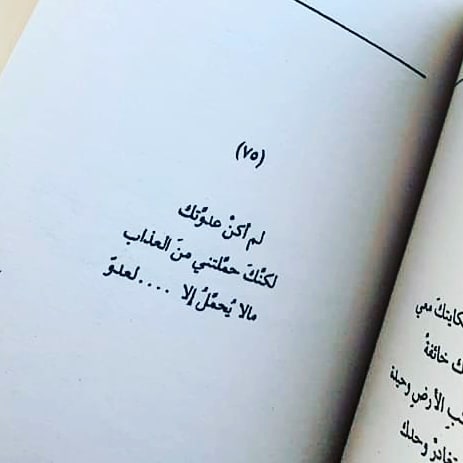 (٧٥)
لم أكنْ عدوَّتك
لكنَّكَ حمَّلتني منَ العذاب
مالا يُحمَّلُ إلا ....لعدوّ
معي
خائفةً
الأرضِ وحيدة
وحدك